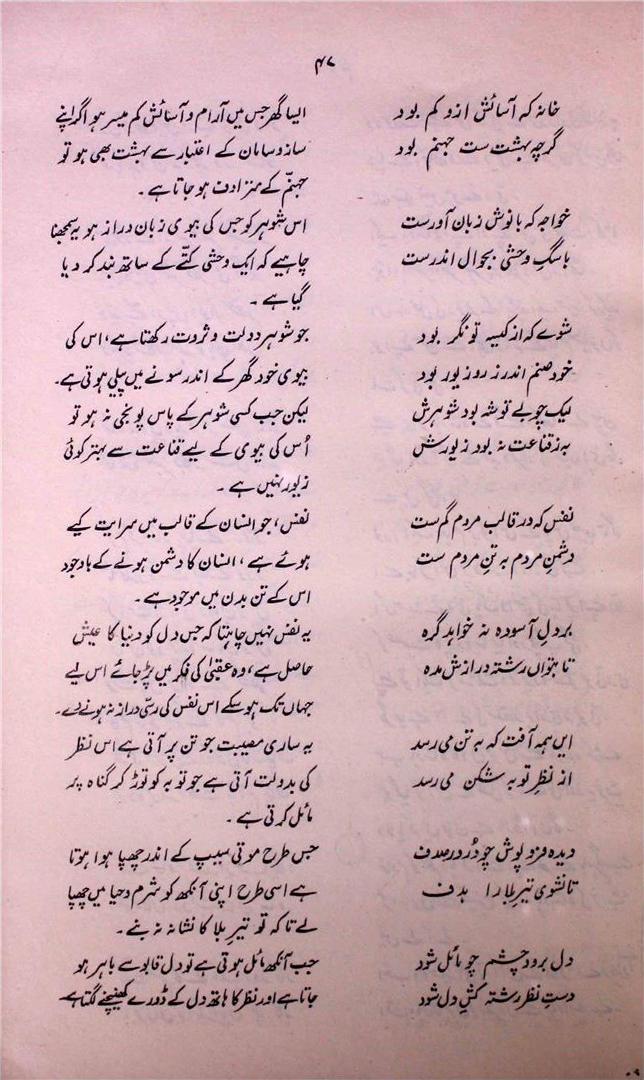 ۴۷
خانہ کہ آسائش ازو کم بود
گرچہ بہشت ست جہنم بود
ایسا گھر جس میں آرام و آسائش کم میسر ہو اگر اپنے
ساز و سامان کے اعتبار سے بہشت بھی ہو تو
جہنّم کے مترادف ہو جاتا ہے۔
خواجہ کہ بانوش زبان آورست
باسگِ وحشی بجوال اندرست
اس شوہر کو جس کی بیوی زبان دراز ہو یہ سمجھنا
چاہیے کہ ایک وحشی کتّے کے ساتھ بند کر دیا
گیا ہے۔
شوے کہ از کیسہ تونگر بود
خود صنم اندر زر و زیور بود
جو شوہر دولت و ثروت رکھتا ہے، اس کی
بیوی خود گھر کے اندر سونے میں پیلی ہوتی ہے۔
لیک چو بے توشہ بود شوہرش
بہ ز قناعت نہ بود زیورش
لیکن جب کسی شوہر کے پاس پونجی نہ ہو تو
اُس کی بیوی کے لیے قناعت سے بہتر کوئی
زیور نہیں ہے۔
نفس کہ در قالب مردم گم ست
دشمنِ مردم بہ تنِ مردم ست
نفس، جو انسان کے قالب میں سرایت کیے
ہوئے ہے، انسان کا دشمن ہونے کے باوجود
اس کے تن بدن میں موجود ہے۔
بر دلِ آسودہ نہ خواہد گرہ
تا بتواں رشتہ درازش مدہ
یہ نفس نہیں چاہتا کہ جس دل کو دنیا کا عیش
حاصل ہے، وہ عقبیٰ کی فکر میں پڑ جائے اس لیے
جہاں تک ہو سکے اس نفس کی رسّی دراز نہ ہونے دے۔
ایں ہمہ آفت کہ بہ تن می رسد
از نظرِ توبہ شکن می رسد
یہ ساری مصیبت جو تن پر آتی ہے اس نظر
کی بدولت آتی ہے جو توبہ کو توڑ کر گناہ پر
مائل کرتی ہے۔
دیدہ فرو پوش چو دُر در صدف
تا نشوی تیرِ بلا را ہدف
جس طرح موتی سیپ کے اندر چھپا ہوا ہوتا
ہے اسی طرح اپنی آنکھ کو شرم و حیا میں چھپا
لے تاکہ تو تیرِ بلا کا نشانہ نہ بنے۔
دل برود چشم چو مائل شود
دستِ نظر رشتہ کشِ دل شود
جب آنکھ مائل ہوتی ہے تو دل قابو سے باہر ہو
جاتا ہے اور نظر کا ہاتھ دل کے ڈورے کھینچنے لگتا ہے۔